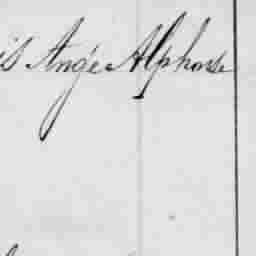 is Ange Alphonse